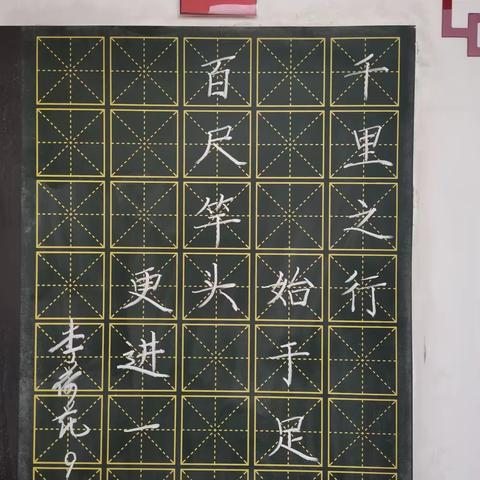 千里之行
始于足
百尺竿头
更进一
李荷花 9